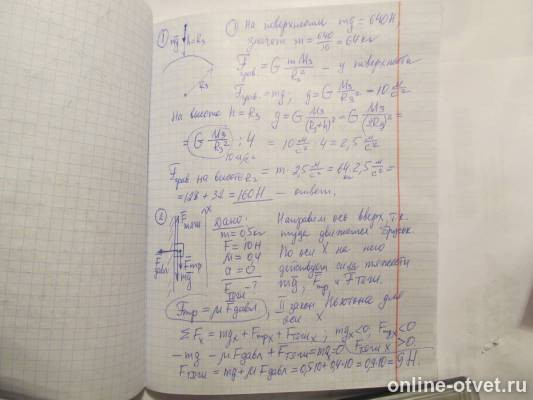 1) mg h=Rз
Rз
1) На поверхности mg = 640 Н,
значит m = 640/10 = 64 кг
Fграв. = G mMз/Rз² – у поверхности
Fграв. = mg; g = G Mз/Rз² = 10 м/с²
На высоте h = Rз g = G Mз/(Rз+h)² = G Mз/(2Rз)² =
= G Mз/Rз² : 4 = 10 м/с² : 4 = 2,5 м/с²
10 м/с²
Fграв. на высоте Rз = m · 2,5 м/с² = 64 кг · 2,5 м/с² =
= 128 + 32 = 160 Н – ответ.
2) X
Fтяги
Fдавл
Fтр
mg
Дано:
m = 0,5 кг
F = 10 Н
μ = 0,4
a = 0
Fтяги – ?
Направим ось вверх, т.к.
туда движется брусок.
По оси X на него
действуют сила тяжести
mg, Fтр и Fтяги.
Fтр = μ Fдавл, II закон Ньютона для
оси X
ΣFx = mgx + Fтрx + Fтягиx; mgx<0, Fтрx<0
Fтягиx >0
–mg – μFдавл + Fтяги = ma = 0
Fтяги = mg + μFдавл = 0,5·10 + 0,4·10 = 0,9·10 = 9 Н.
online-otvet.ru